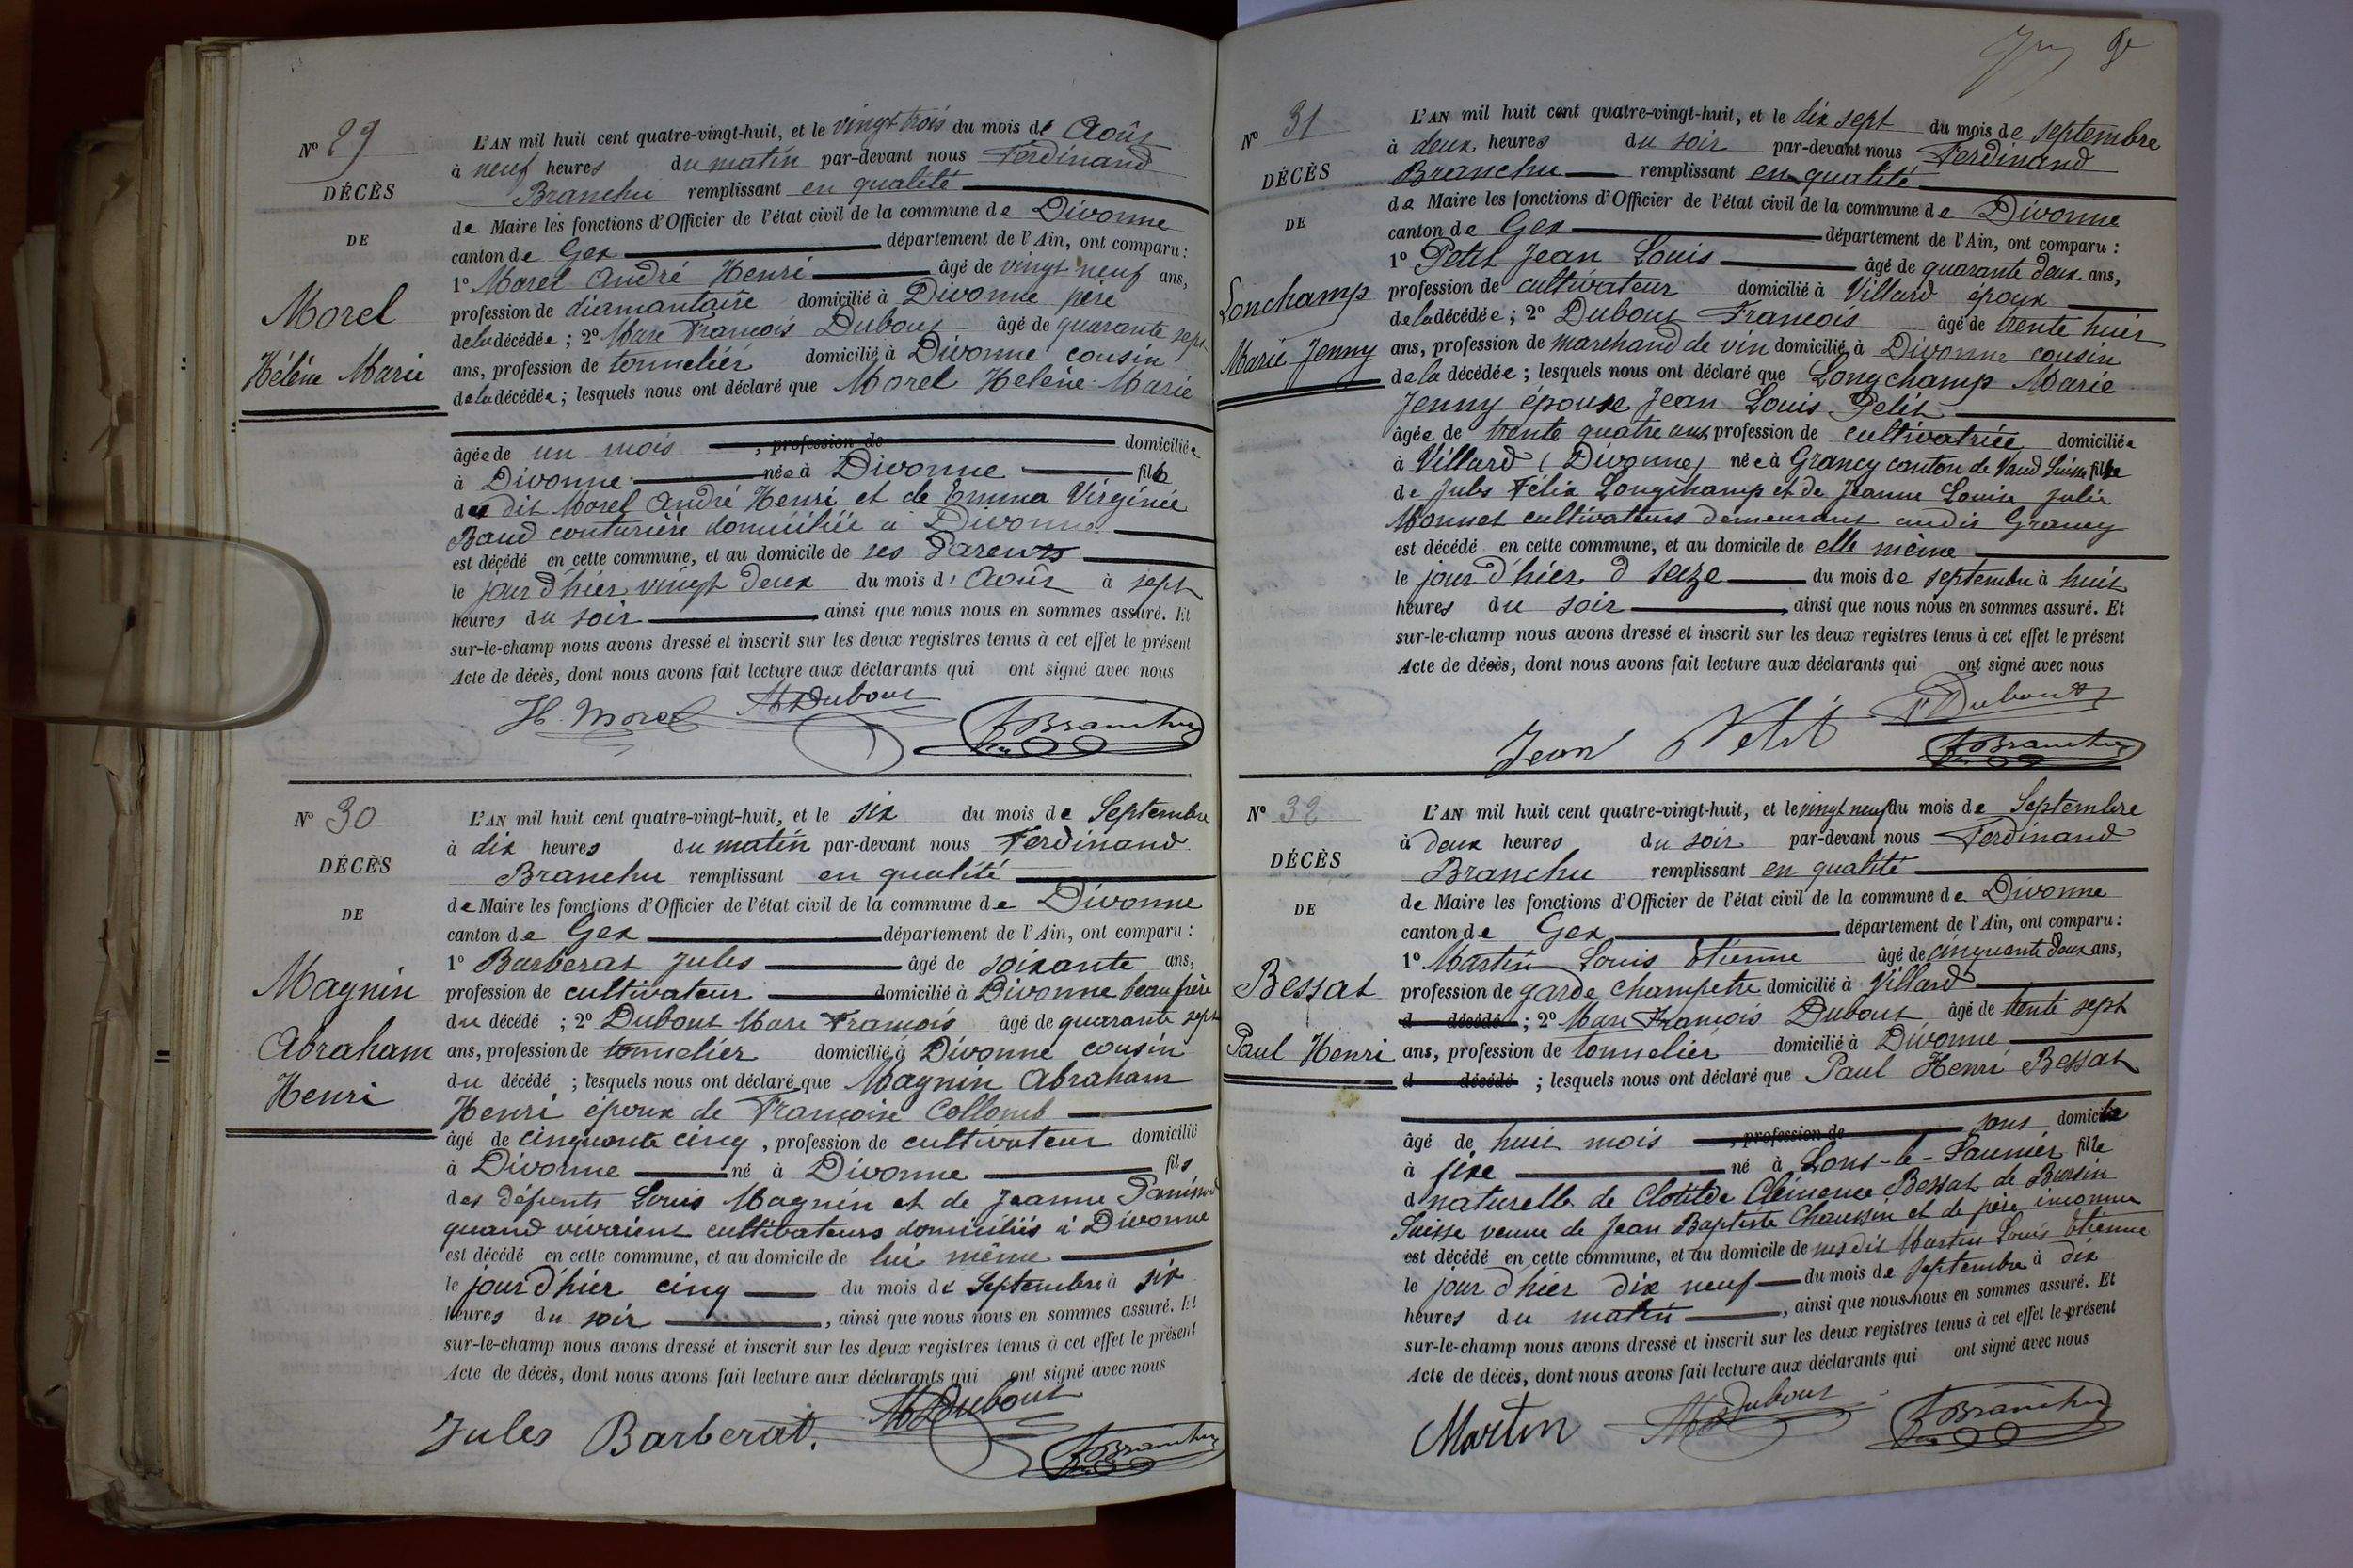 N° 29
DÉCÈS
DE
Morel
Hélène Marie
L'AN mil huit cent quatre-vingt-huit, et le vingt trois du mois de Août
à neuf heures du matin par-devant nous Ferdinand
Branchu remplissant en qualité
de Maire les fonctions d'Officier de l'état civil de la commune de Divonne
canton de Gex département de l'Ain, ont comparu :
1° Morel André Henri âgé de vingt neuf ans,
profession de diamantaire domicilié à Divonne père
de la décédée ; 2° Marc François Dubout âgé de quarante sept
ans, profession de tonnelier domicilié à Divonne cousin
de la décédée ; lesquels nous ont déclaré que Morel Helène Marie
âgée de un mois , profession de domiciliée
à Divonne née à Divonne fille
du dit Morel André Henri et de Emma Virginie
Baud couturière domiciliée à Divonne
est décédé en cette commune, et au domicile de ses Parents
le jour d'hier vingt deux du mois d' Août à sept
heures du soir ainsi que nous nous en sommes assuré. Et
sur-le-champ nous avons dressé et inscrit sur les deux registres tenus à cet effet le présent
Acte de décès, dont nous avons fait lecture aux déclarants qui ont signé avec nous
H. Morel M Dubout F Branchu
N° 30
DÉCÈS
DE
Magnin
Abraham
Henri
L'AN mil huit cent quatre-vingt-huit, et le six du mois de Septembre
à dix heures du matin par-devant nous Ferdinand
Branchu remplissant en qualité
de Maire les fonctions d'Officier de l'état civil de la commune de Divonne
canton de Gex département de l'Ain, ont comparu :
1° Barberat Jules âgé de soixante ans,
profession de cultivateur domicilié à Divonne beau frère
du décédé ; 2° Dubout Marc François âgé de quarante sept
ans, profession de tonnelier domicilié à Divonne cousin
du décédé ; lesquels nous ont déclaré que Magnin Abraham
Henri époux de Françoise Collomb
âgé de cinquante cinq , profession de cultivateur domicilié
à Divonne né à Divonne fils
des défunts Louis Magnin et de Jeanne
quand vivaient cultivateurs domiciliés à Divonne
est décédé en cette commune, et au domicile de lui même
le jour d'hier cinq du mois de Septembre à six
heures du soir , ainsi que nous nous en sommes assuré. Et
sur-le-champ nous avons dressé et inscrit sur les deux registres tenus à cet effet le présent
Acte de décès, dont nous avons fait lecture aux déclarants qui ont signé avec nous
Jules Barberat. M Dubout F Branchu
N° 31
DÉCÈS
DE
Lonchamp
Marie Jenny
L'AN mil huit cent quatre-vingt-huit, et le dix sept du mois de septembre
à deux heures du soir par-devant nous Ferdinand
Branchu remplissant en qualité
de Maire les fonctions d'Officier de l'état civil de la commune de Divonne
canton de Gex département de l'Ain, ont comparu :
1° Petit Jean Louis âgé de quarante deux ans,
profession de cultivateur domicilié à Villard époux
de la décédée ; 2° Dubout François âgé de trente huit
ans, profession de marchand de vin domicilié à Divonne cousin
de la décédée ; lesquels nous ont déclaré que Longchamp Marie
Jenny épouse Jean Louis Petit
âgée de trente quatre ans profession de cultivatrice domiciliée
à Villard (Divonne) née à Grancy canton de Vaud Suisse fille
de Jules Félix Longchamp et de Jeanne Louise Julie
Monnet cultivateurs demeurant audit Grancy
est décédé en cette commune, et au domicile de elle même
le jour d'hier d seize du mois de septembre à huit
heures du soir , ainsi que nous nous en sommes assuré. Et
sur-le-champ nous avons dressé et inscrit sur les deux registres tenus à cet effet le présent
Acte de décès, dont nous avons fait lecture aux déclarants qui ont signé avec nous
Jean Petit F Dubout F Branchu
N° 32
DÉCÈS
DE
Bessat
Paul Henri
L'AN mil huit cent quatre-vingt-huit, et le vingt neuf du mois de Septembre
à deux heures du soir par-devant nous Ferdinand
Branchu remplissant en qualité
de Maire les fonctions d'Officier de l'état civil de la commune de Divonne
canton de Gex département de l'Ain, ont comparu :
1° Martin Louis Etienne âgé de cinquante deux ans,
profession de garde champetre domicilié à Villard
d décédé ; 2° Marc François Dubout âgé de trente sept
ans, profession de tonnelier domicilié à Divonne
d décédé ; lesquels nous ont déclaré que Paul Henri Bessat
âgé de huit mois , profession de sans domicile
à fixe né à Lons-le-Saunier fille
d naturelle de Clotilde Clémence Bessat de Bursin
Suisse veuve de Jean Baptiste Chaussin et de père inconnu
est décédé en cette commune, et au domicile de susdit Martin Louis Etienne
le jour d'hier dix neuf du mois de septembre à dix
heures du matin , ainsi que nous nous en sommes assuré. Et
sur-le-champ nous avons dressé et inscrit sur les deux registres tenus à cet effet le présent
Acte de décès, dont nous avons fait lecture aux déclarants qui ont signé avec nous
Martin M Dubout F Branchu